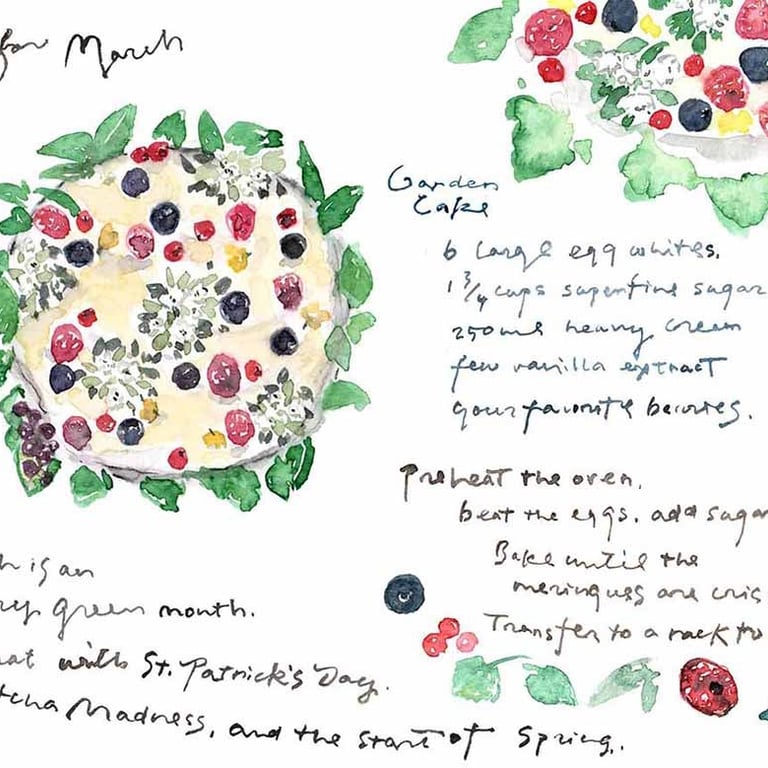 for March
Garden
Cake
6 large egg whites.
1 3/4 cups superfine sugar
250ml heavy cream
few vanilla extract
your favorite berries.
Preheat the oven.
beat the eggs. add sugar
Bake until the
meringues are cris
Transfer to a rack to
h is an
ry green month.
hat with St. Patrick's Day.
tcha Madness, and the start of Spring.